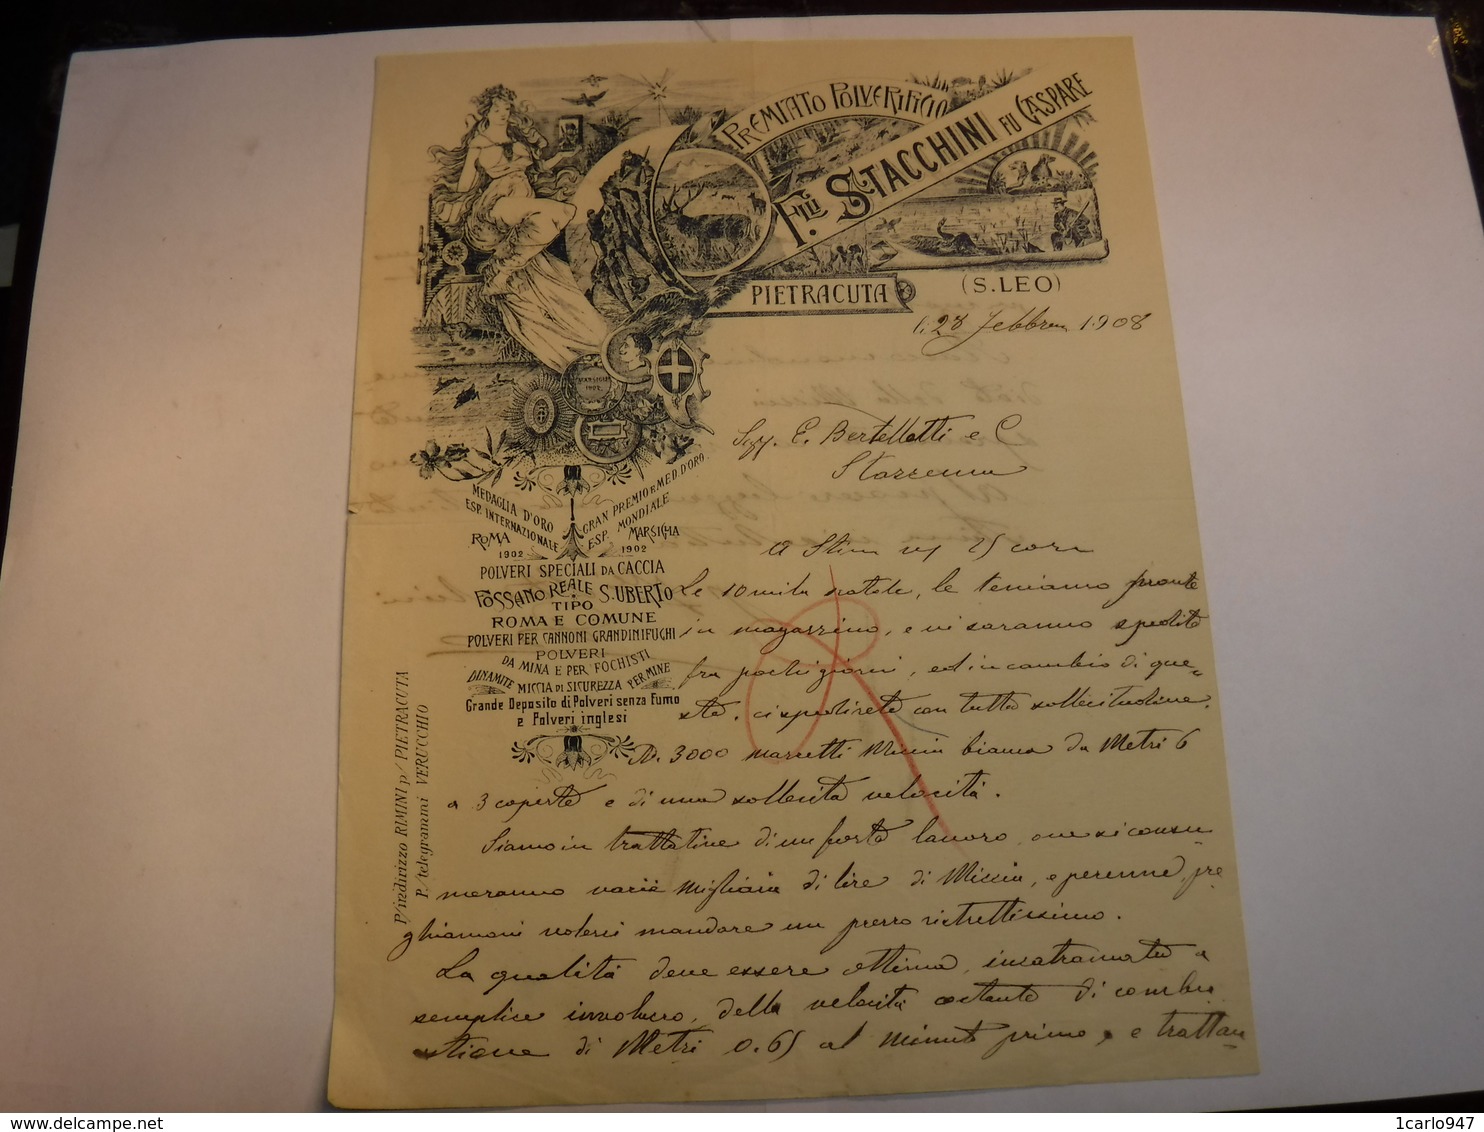 PREMIATO POLVERIFICIO
F.LLI STACCHINI FU GASPARE
PIETRACUTA
(S. LEO)
28 Febbraio 1908
MARSIGLIA
1902
Sigg. E. Bertellotti e C
Stazzema
MEDAGLIA D'ORO
ESP. INTERNAZIONALE
ROMA
1902
GRAN PREMIO E MED. D'ORO
ESP. MONDIALE
MARSIGLIA
1902
POLVERI SPECIALI DA CACCIA
FOSSANO REALE S. UBERTO
TIPO
ROMA E COMUNE
POLVERI PER CANNONI GRANDINIFUGHI
POLVERI
DA MINA E PER FOCHISTI
DINAMITE MICCIA DI SICUREZZA PER MINE
Grande Deposito di Polveri senza Fumo
e Polveri inglesi
P/indirizzo RIMINI p/ PIETRACUTA
P./telegrammi VERUCCHIO
A Stim 25 corr
Le 10 mila, le teniamo pronte
in magazzino, e vi saranno spedite
fra pochi giorni, ed in cambio di que-
ste, ci spedirete con tutta sollecitudine,
N. 3000 mazzetti Miccia bianca da Metri 6
a 3 coperte e di una sollecita velocità.
Siamo in trattative di un forte lavoro, ove si consu
meranno varie migliaia di lire di Miccia, e perciò, pre
ghiamovi volerci mandare un prezzo ristrettissimo.
La qualità deve essere ottima, incatramata a
semplice involucro, della velocità costante di combu
stione di Metri 0.65 al minuto primo, e trattan